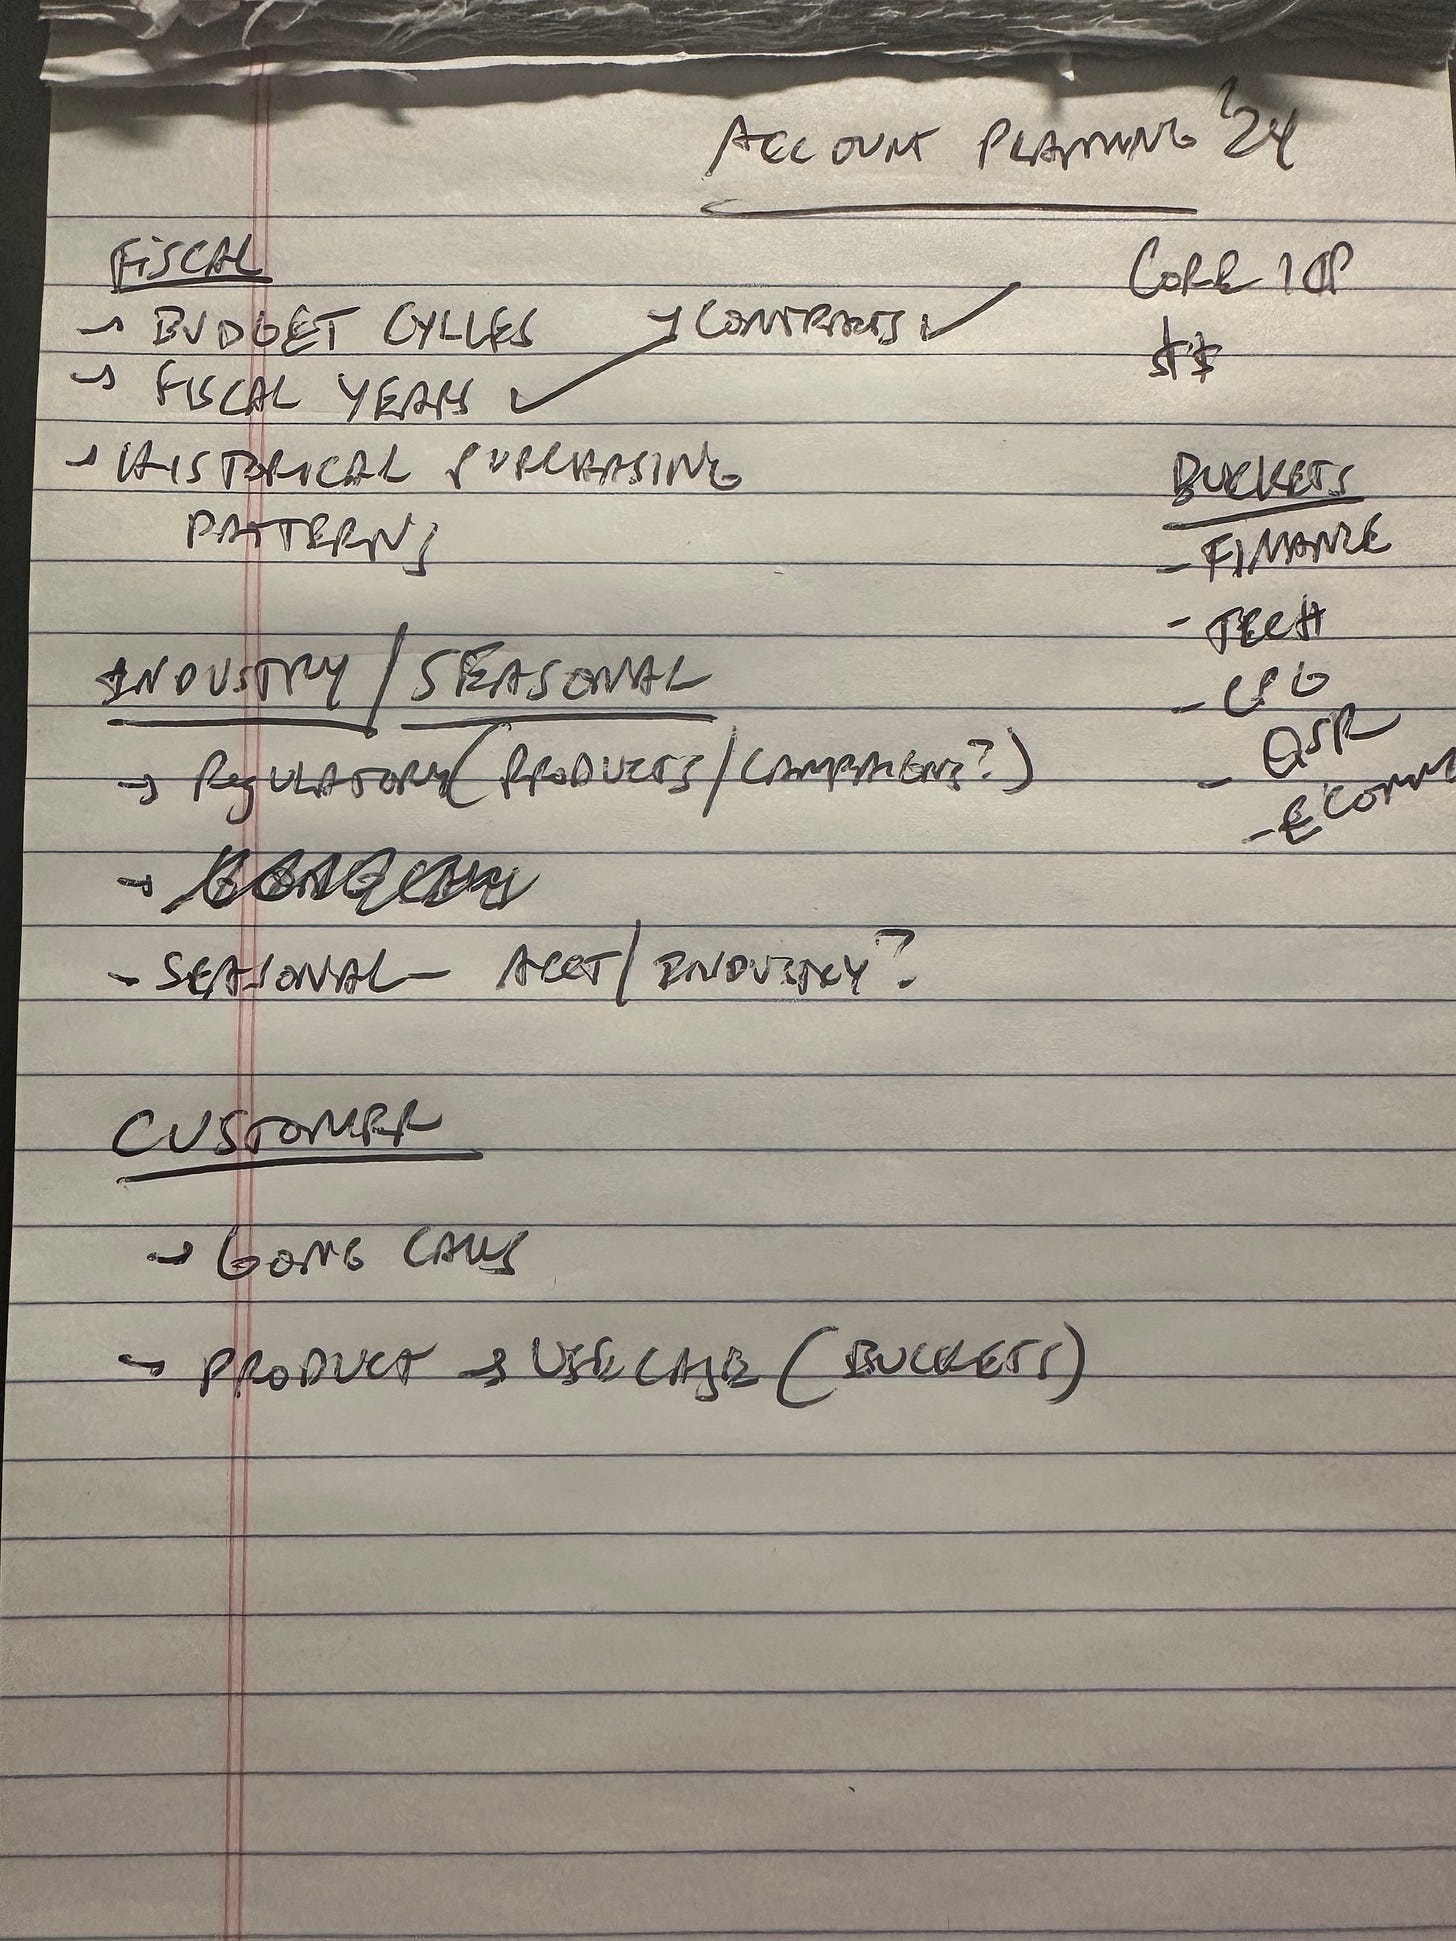 ACCOUNT PLANNING '24
FISCAL
→ BUDGET CYCLES → CONTRACTS ✓
→ FISCAL YEARS ✓
→ HISTORICAL PURCHASING
PATTERNS
CORE ICP
$$
BUCKETS
- FINANCE
- TECH
- CPG
- QSR
- ECOMM
INDUSTRY / SEASONAL
→ REGULATORY (PRODUCTS/CAMPAIGNS?)
- SEASONAL - ACCT/INDUSTRY?
CUSTOMER
→ GONG CALLS
→ PRODUCT → USE CASE (BUCKETS)